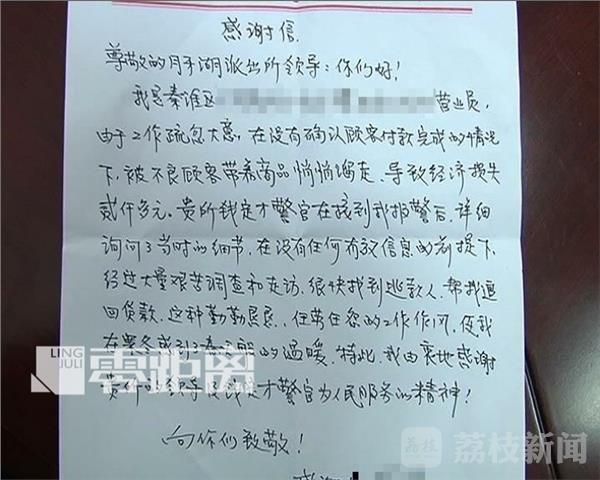 感谢信
尊敬的月牙湖派出所领导：你们好！
我是秦淮区 营业员，
由于工作疏忽大意，在没有确认顾客付款完成的情况
下，被不良顾客带着商品悄悄溜走，导致经济损失
贰仟多元。贵所钱定才警官在接到我报警后，详细
询问了当时的细节，在没有任何有效信息的前提下，
经过大量艰苦调查和走访，很快找到逃款人，帮我追
回货款，这种勤勤恳恳，任劳任怨的工作作风，使我
在寒冬感到 的温暖，特此，我由衷地感谢
贵所的领导及钱定才警官为人民服务的精神！
向你们致敬！
感谢
LING
JULI
零距离
荔枝
荔枝新闻